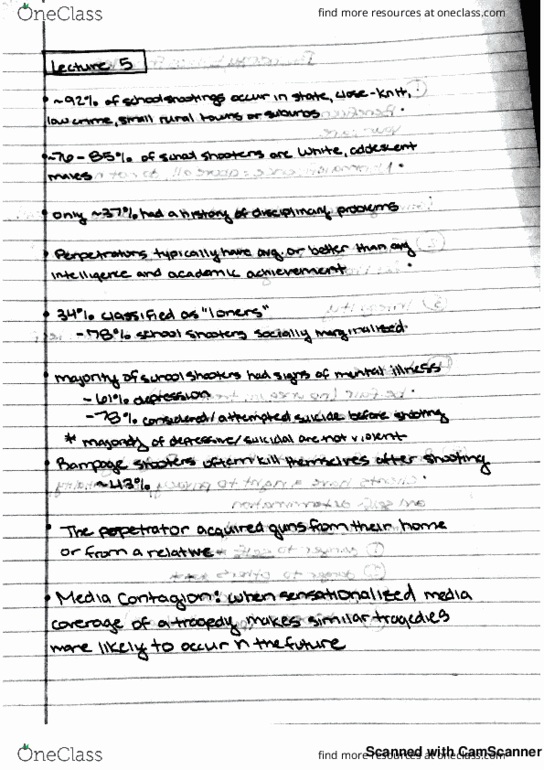 OneClass
find more resources at oneclass.com
Lecture 5
• ~92% of school shootings occur in state, close-knit,
low crime, small rural towns or suburbs
• ~76-85% of school shooters are White, adolescent
males
• only ~37% had a History of disciplinary problems
• Perpetrators typically have avg. or better than avg
intelligence and academic achievement
• 34% classified as "loners"
- 78% school shooters socially marginalized.
• majority of school shooters had signs of mental illness
- 61% depression
- 78% considered/attempted suicide before shooting
* majority of depressive/suicidal are not violent
• Rampage shooters oftem kill themselves after shooting
~43%
• The perpetrator acquired guns from their home
or from a relative
• Media Contagion: when sensationalized media
coverage of a tragedy makes similar tragedies
more likely to occur n the future
OneClass
find more resources at oneclass.com
Scanned with CamScanner